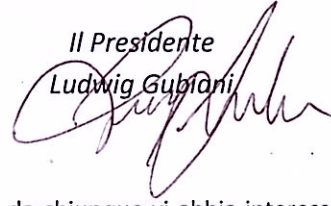 Il Presidente
Ludwig Gubiani
da chiunque vi abbia interess